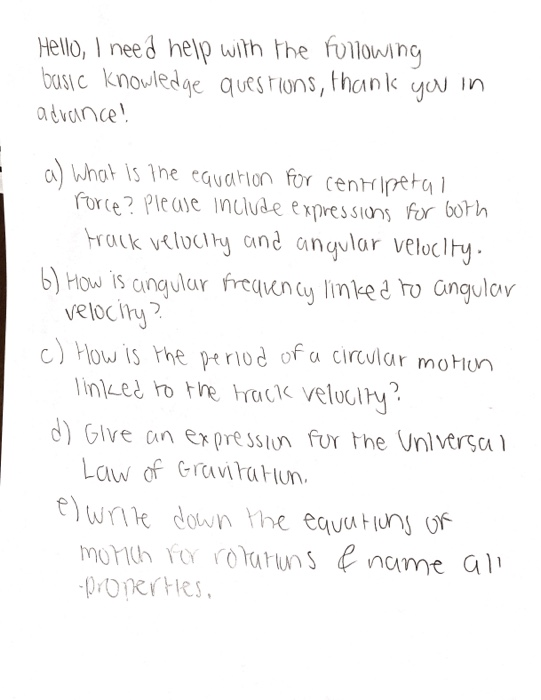 Hello, I need help with the following
basic knowledge questions, thank you in
advance!
a) What is the equation for centripetal
force? Please include expressions for both
track velocity and angular velocity.
b) How is angular frequency linked to angular
velocity?
c) How is the period of a circular motion
linked to the track velocity?
d) Give an expression for the Universal
Law of Gravitation.
e) Write down the equations of
motion for rotations & name all
properties.